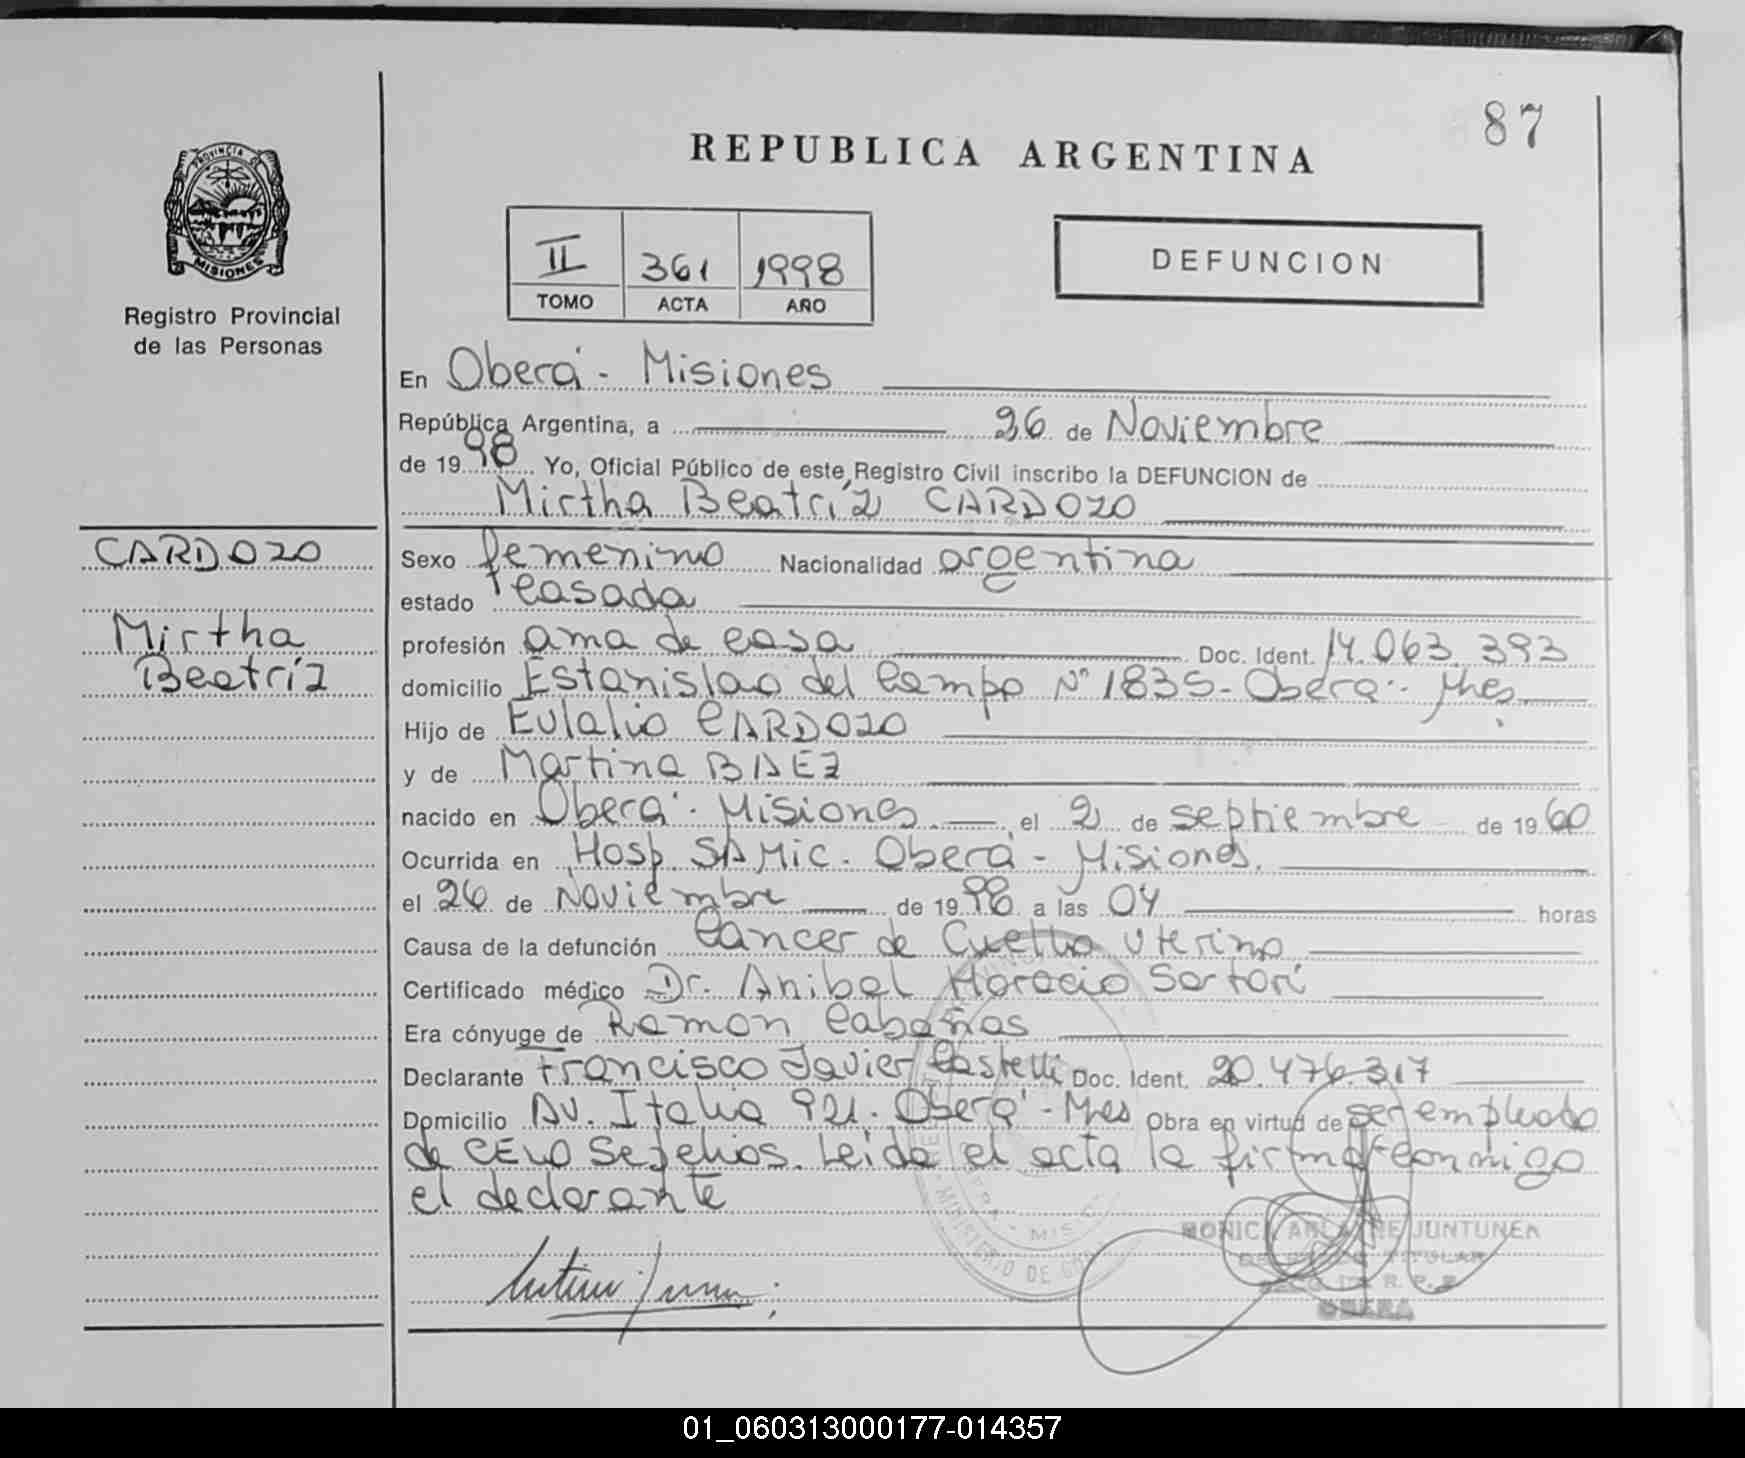 87
REPUBLICA ARGENTINA
PROVINCIA DE
MISIONES
II 361 1998
TOMO ACTA AÑO
DEFUNCION
Registro Provincial
de las Personas
En Oberá - Misiones
República Argentina, a 26 de Noviembre
de 1998 Yo, Oficial Público de este Registro Civil inscribo la DEFUNCION de
Mirtha Beatríz CARDOZO
CARDOZO
Mirtha
Beatríz
Sexo femenino Nacionalidad argentina
estado casada
profesión ama de casa Doc. Ident. 14.063.393
domicilio Estanislao del Campo Nº 1835 - Oberá - Mnes
Hijo de Eulalio CARDOZO
y de Martina BAEZ
nacido en Oberá - Misiones el 2 de septiembre de 1960
Ocurrida en Hosp. SAMIC. Oberá - Misiones.
el 26 de Noviembre de 1998 a las 04 horas
Causa de la defunción Cancer de Cuello Uterino
Certificado médico Dr. Anibal Horacio Sartori
Era cónyuge de Ramon Cabañas
Declarante Francisco Javier Castelli Doc. Ident. 20.476.317
Domicilio Av. Italia 921. Oberá - Mnes Obra en virtud de ser empleado
de CELO Sepelios. Leida el acta la firma conmigo
el declarante
MINISTERIO DE
TITULAR
R. P. P.
OBERA
01_060313000177-014357